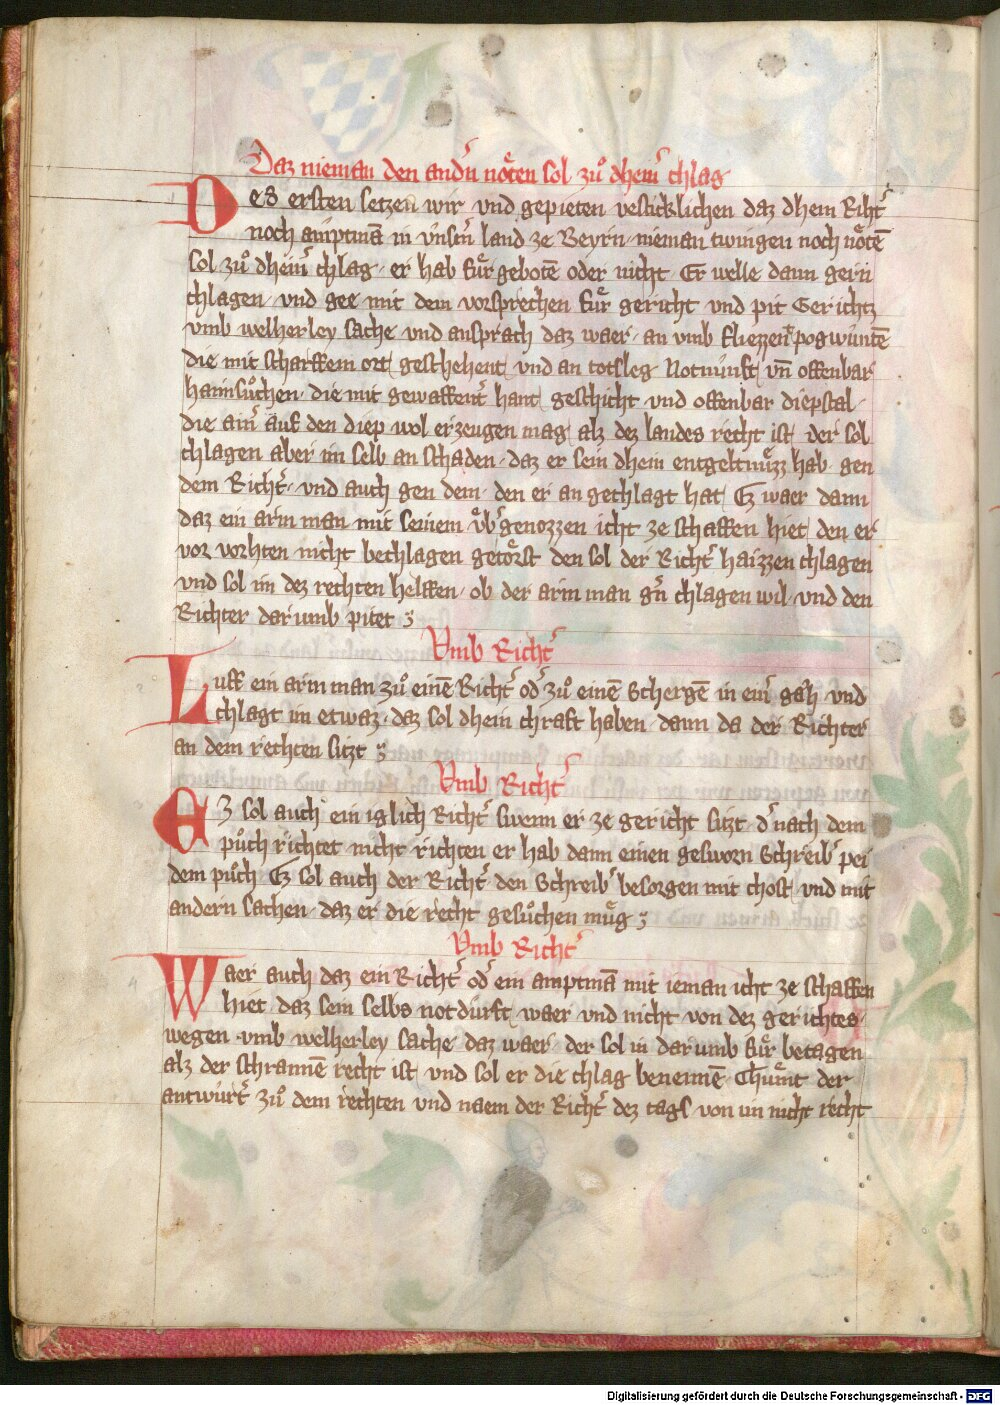 Daz nieman den andn̄ nöten sol zů dheīn chlag
Des ersten setzen wir vnd gepieten vesticklichen daz dhein Richt᷑
noch amptmā in vnsm̄ land ze Beyrn nieman twingen noch nötē
sol zů dheīn chlag er hab für gebotē oder nicht Er welle dann gern
chlagen vnd gee mit dem vorsprechen für gericht vnd pit Gerichtz
vmb welherley sache vnd ansprach daz waer an vmb fliezzent᷑ pogwuntē
die mit scharffem ort geschehent vnd an totsleg Notnunft vn̄ offenbar
haimsůchen die mit gewaffent᷑ hant geschicht vnd offenbar diepstal
die ain᷑ auf den diep wol erzeugen mag alz dez landes recht ist der sol
chlagen aber im selb an schaden daz er sein dhein entgeltnüzz hab gen
dem Richt᷑ vnd auch gen dem den er angechlagt hat Ez waer dann
daz ein arm man mit seinem vb᷑genozzen icht ze schaffen hiet den er
vor vorhten nicht bechlagen getörst den sol der Richt᷑ haizzen chlagen
vnd sol im dez rechten helffen ob der arm man gn̄ chlagen wil vnd den
Richter darumb pitet ꝫ
Vmb Richt᷑
Luff ein arm man zů einē Richt᷑ od᷑ zů einē Schergē in ein᷑ gäh vnd
chlagt im etwaz daz sol dhein chraft haben dann da der Richter
an dem rechten sitzt ꝫ
Vmb Richt᷑
Ez sol auch ein iglich Richt᷑ swenn er ze gericht sitzt d᷑ nach dem
půch richtet nicht richten er hab dann einen gesworn Schreib᷑ pei
dem půch Ez sol auch der Richt᷑ den Schreib᷑ besorgen mit chost vnd mit
andern sachen daz er die recht gesůchen müg ꝫ
Vmb Richt᷑
Waer auch daz ein Richt᷑ od᷑ ein amptmā mit ieman icht ze schaffen
hiet daz sein selbs notdurft waer vnd nicht von dez gerichtes
wegen vmb welherley sache daz waer der sol in darumb für betagen
alz der schrannē recht ist vnd sol er die chlag benennē Chümt der
antwürt᷑ zů dem rechten vnd naem der Richt᷑ dez tags von im nicht recht
Digitalisierung gefördert durch die Deutsche Forschungsgemeinschaft - DFG